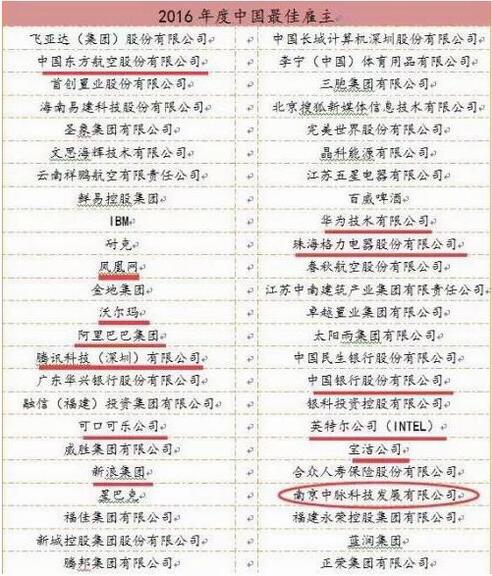 2016 年度中国最佳雇主
飞亚达（集团）股份有限公司
中国长城计算机深圳股份有限公司
中国东方航空股份有限公司
李宁（中国）体育用品有限公司
首创置业股份有限公司
三胞集团有限公司
海南易建科技股份有限公司
北京搜狐新媒体信息技术有限公司
圣象集团有限公司
完美世界股份有限公司
文思海辉技术有限公司
晶科能源有限公司
云南祥鹏航空有限责任公司
江苏五星电器有限公司
鲜易控股集团
百威啤酒
IBM
华为技术有限公司
耐克
珠海格力电器股份有限公司
凤凰网
春秋航空股份有限公司
金地集团
江苏中南建筑产业集团有限责任公司
沃尔玛
卓越置业集团有限公司
阿里巴巴集团
太阳雨集团有限公司
腾讯科技（深圳）有限公司
中国民生银行股份有限公司
广东华兴银行股份有限公司
中国银行股份有限公司
融信（福建）投资集团有限公司
银科投资控股有限公司
可口可乐公司
英特尔公司（INTEL）
威胜集团有限公司
宝洁公司
新浪集团
合众人寿保险股份有限公司
星巴克
南京中脉科技发展有限公司
福佳集团有限公司
福建永荣控股集团有限公司
新城控股集团股份有限公司
蓝润集团
腾邦集团有限公司
正荣集团有限公司